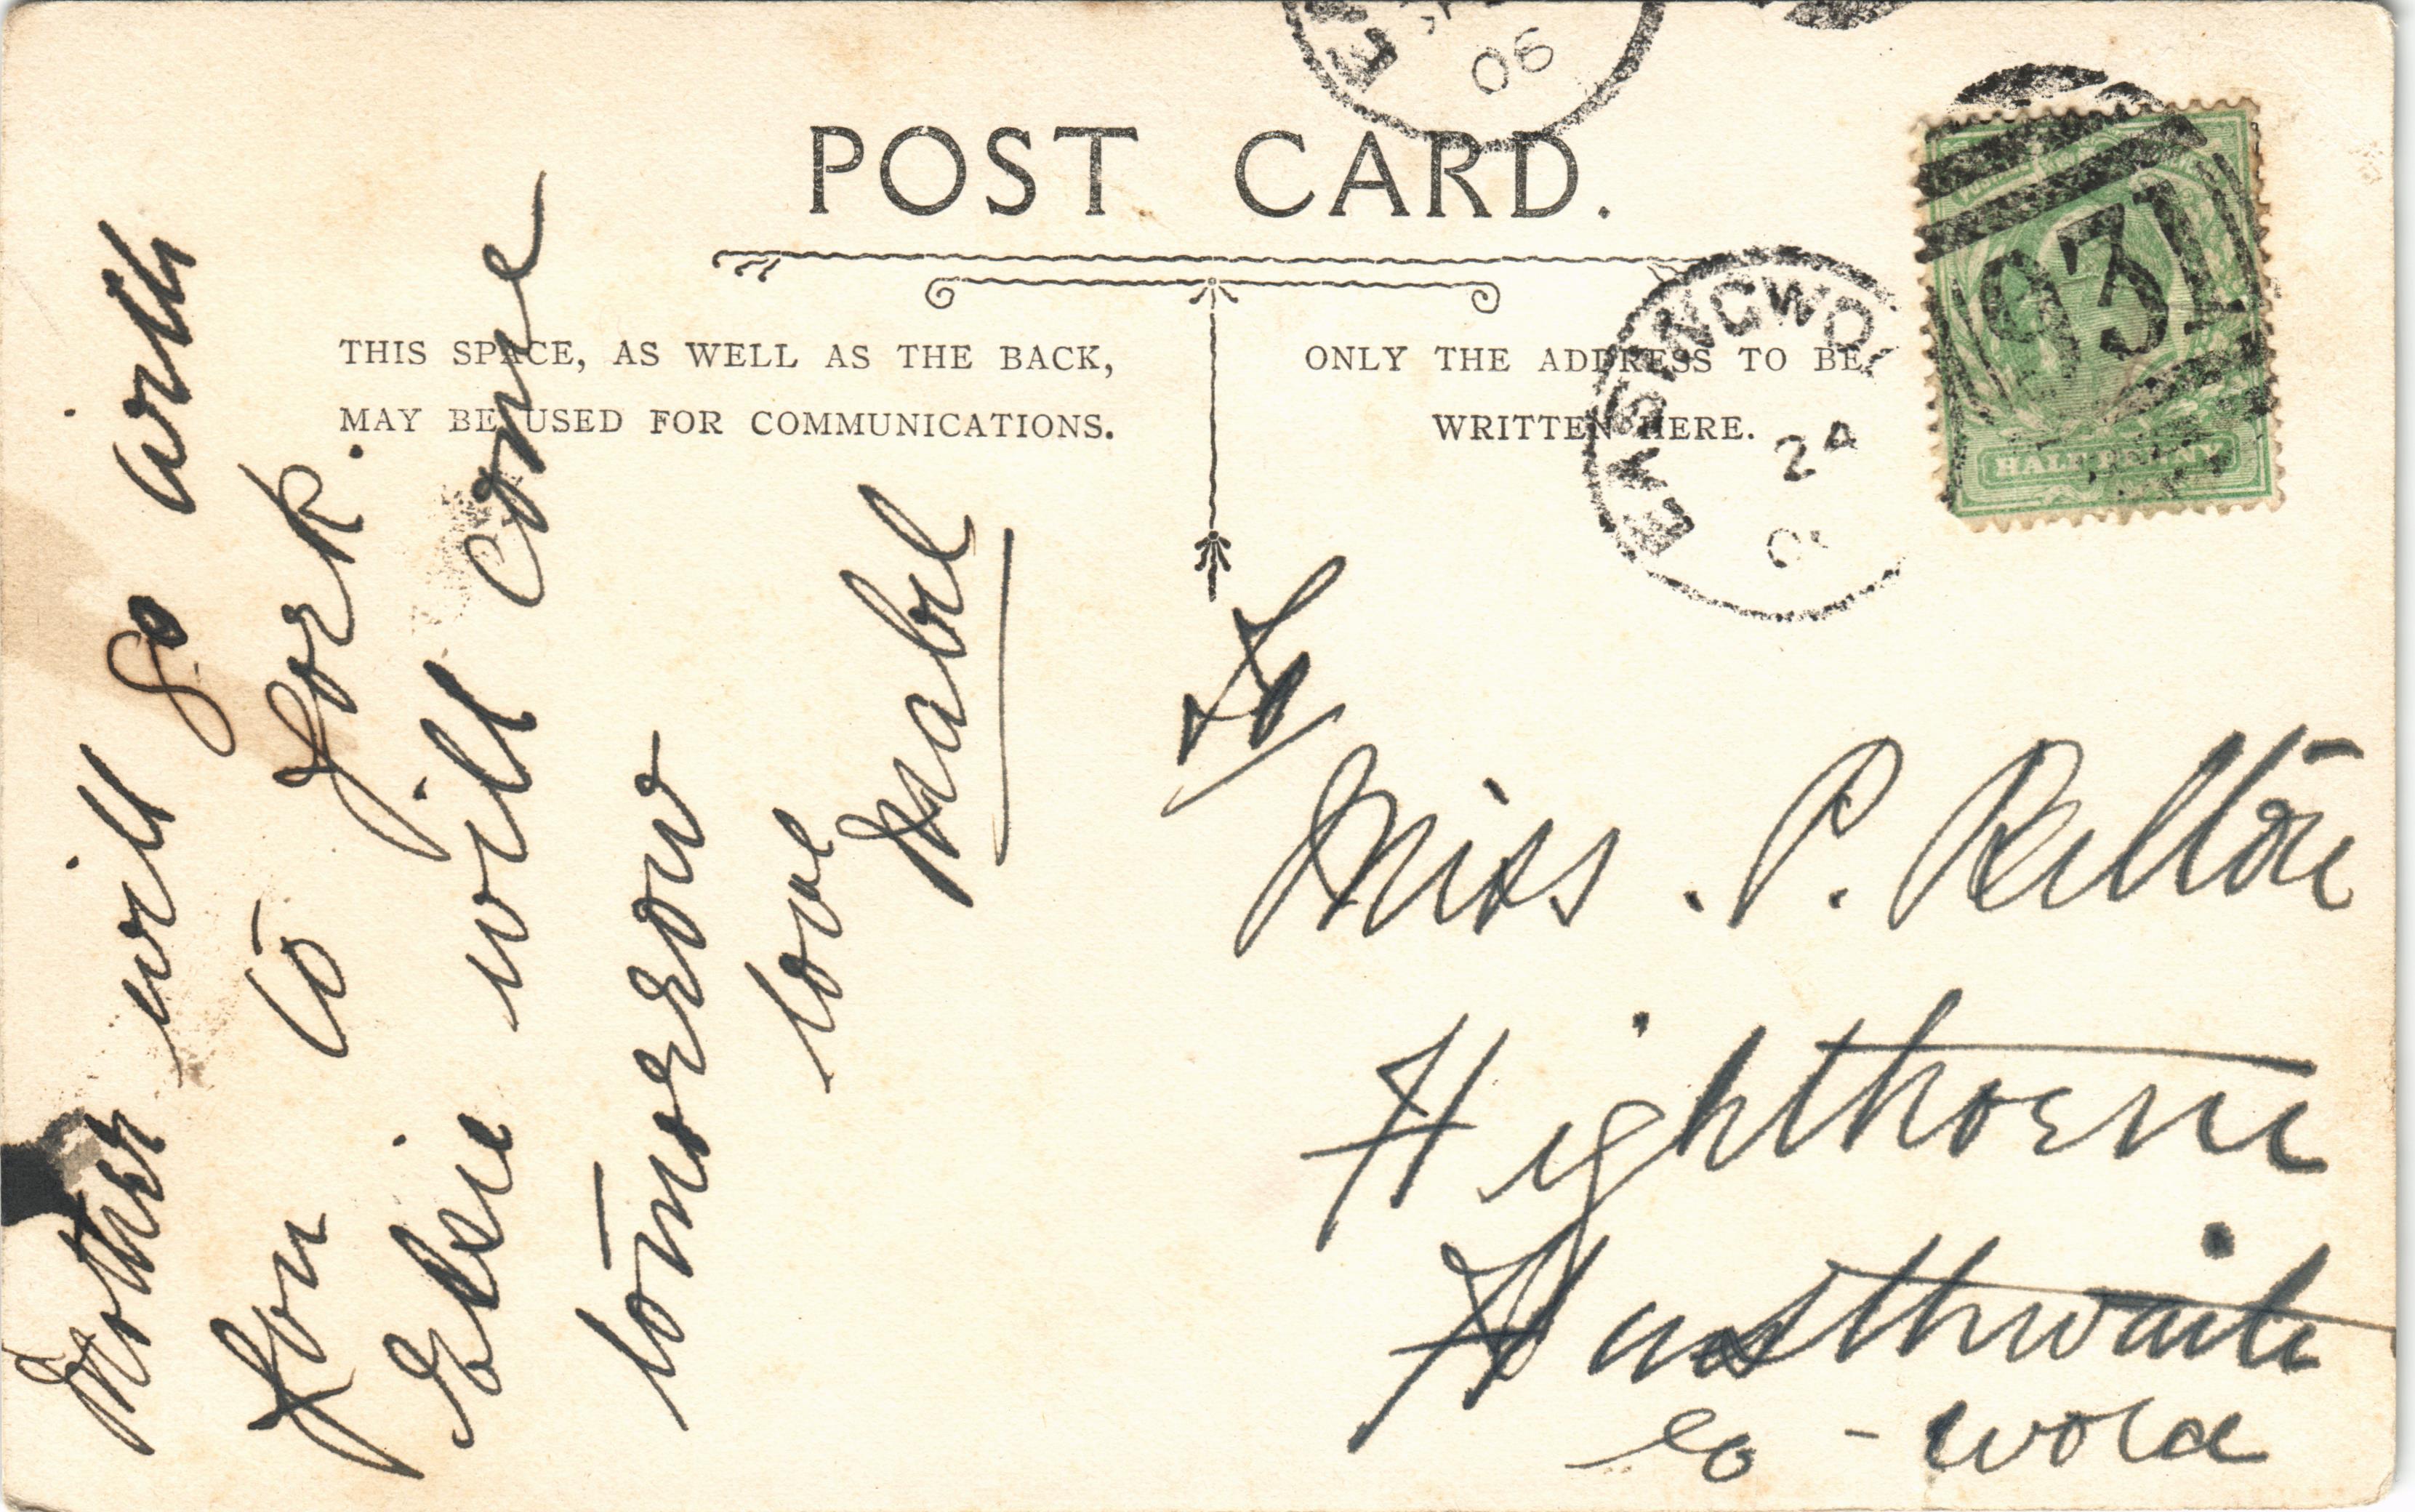 POST CARD.
THIS SPACE, AS WELL AS THE BACK,
MAY BE USED FOR COMMUNICATIONS.
ONLY THE ADDRESS TO BE
WRITTEN HERE.
06
EASINGWO
24
931
HALF PENNY
Mother will go with
you to York.
Elsie will come
tomorrow
love
Mabel
To
Miss. P.
Highthorne
Husthwaite
Eo - wold